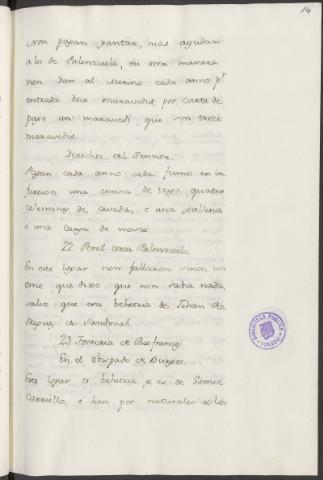 14
Non pagan yantar, mas ayudan
a los de Palenzuela, en otra manera
non. Dan al Merino cada anno pr
entrada doce maravedis, por carta de
pago un maravedi que son trece
maravedis.
Derechos del Sennor.
Pagan cada anno cada fumo en in
furcion una emina de trigo, quatro
celemines de cevada, e una gallina
e una carga de mosto.
22 Peral cerca Palenzuela.
En este logar non fallaron sinon un
ome que dixo que non sabia nada,
salvo que era behetria de Johan Ro
driguez de Sandoval.
23 de Riofranco
En el Obispado de Burgos.
Este logar es behetria, e es de Gomez
Carriello, e han por naturales a los
BIBLIOTECA PUBLICA
TOLEDO